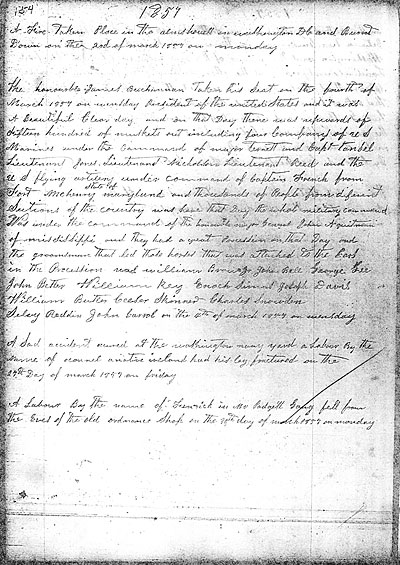 154
1857
A Fire Taken Place in the almshouse in washington Db and Burnt
Down on the 2nd of march 1857 on monday
The honorable James Buchannan Taken his seat on the fourth of
March 1857 on wensday President of the united States and it was
A Beautiful Clear day and on that Day there was upwards of
fifteen hundred of muskets out including four Company of u S
Marines under the Command of major and Capt
Lieutenant Jones Lieutenant Nicholson Lieutenant Reed and the
u S flying artilery under Command of Captain French from
State of
Fort Mchenry maryland and thousands of People from diferint
Sections of the country was here that Day the whole military command
Was under the command of the honorable major General John A Quitman
of mississippi and they had a great Procession on that Day and
the groundmen that led the horses that was attached to the Car
in the Procession was William John Bell George Lee
John Bettes William Key Enoch Joseph Davis
William Butler Skinner Charles Snowden
John Carrol on the 4th of march 1857 on wensday
A Sad accident occured at the washington navy yard a Labor By the
name of had his leg fractured on the
27th Day of march 1857 on friday
A Labour By the name of Fenwick in Mr Padgett Gang fell from
the Eves of the old ordnance Shop on the day of march 1857 on monday